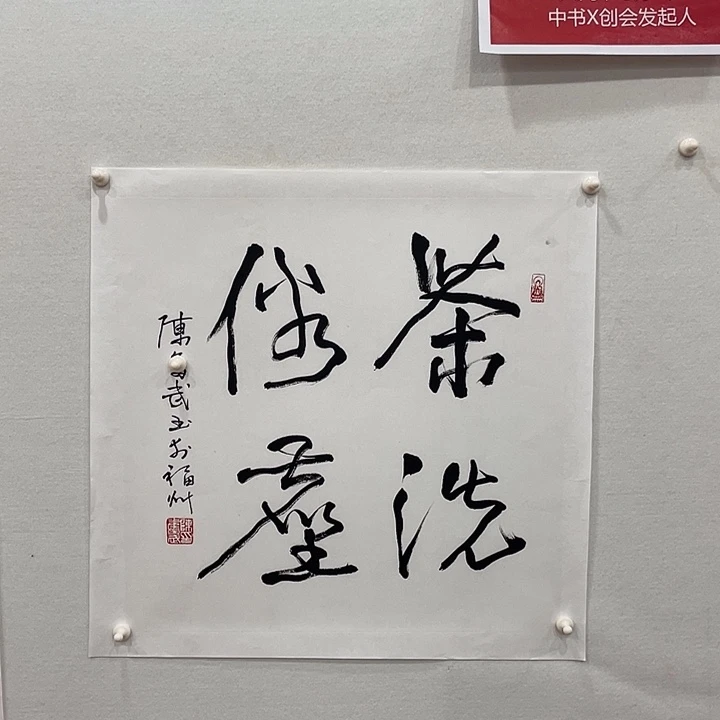 中书X创会发起人
茶洗
俗塵
陳武書於福州